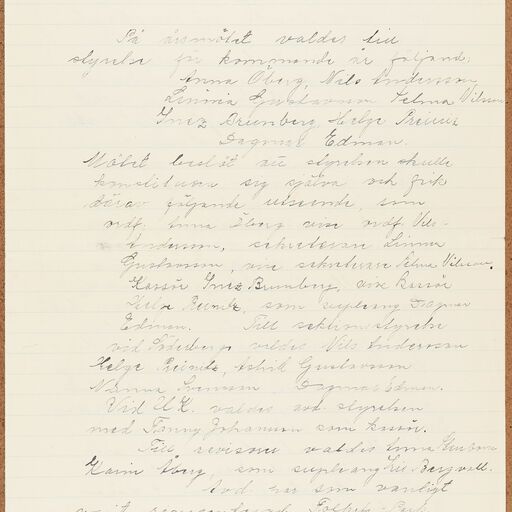 På årsmötet valdes till
styrelse för kommande år följand:
Anna Öberg, Nils Andersson
Linnia Gustavsson Selma Vilsson
Inez Brunberg, Helge
Dagmar Edman.
Mötet beslöt att styrelsen skulle
konstituera sig själva och fick
därav följande utseende, som
ordf. Anna Öberg vise ordf. Nils
Andersson, sekreterare Linnea
Gustavsson, vise sekreterare Selma Vilsson.
Kassör Inez Brunberg, vise kassör
Helge som supleang Dagmar
Edman. Till
vid Söderberg valdes Nils Andersson
Helge Gustavsson
Nanna Svensson Dagmar Edman.
Vid U.K. valdes avd. styrelsen
med Fanny Johansson som kassör.
Till revisorer valdes Anna
Karin Åberg, som supleang Lill Bergvall.
Avd. har som vanligt